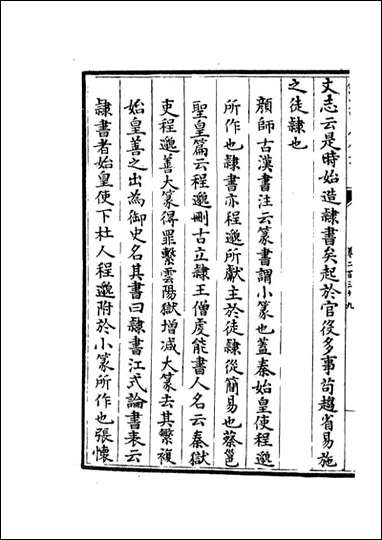 文志云是時始造隸書矣起於官役多事茍趨省易施
之徒隸也
顔師古漢書注云篆書謂小篆也蓋秦始皇使程邈
所作也隸書亦程邈所獻主於徒隸從簡易也蔡邕
聖皇篇云程邈刪古立隸王僧虔能書人名云秦獄
吏程邈善大篆得罪繫雲陽獄增減大篆去其繁複
始皇善之出為御史名其書曰隸書江式論書表云
隸書者始皇使下杜人程邈附於小篆所作也張懷